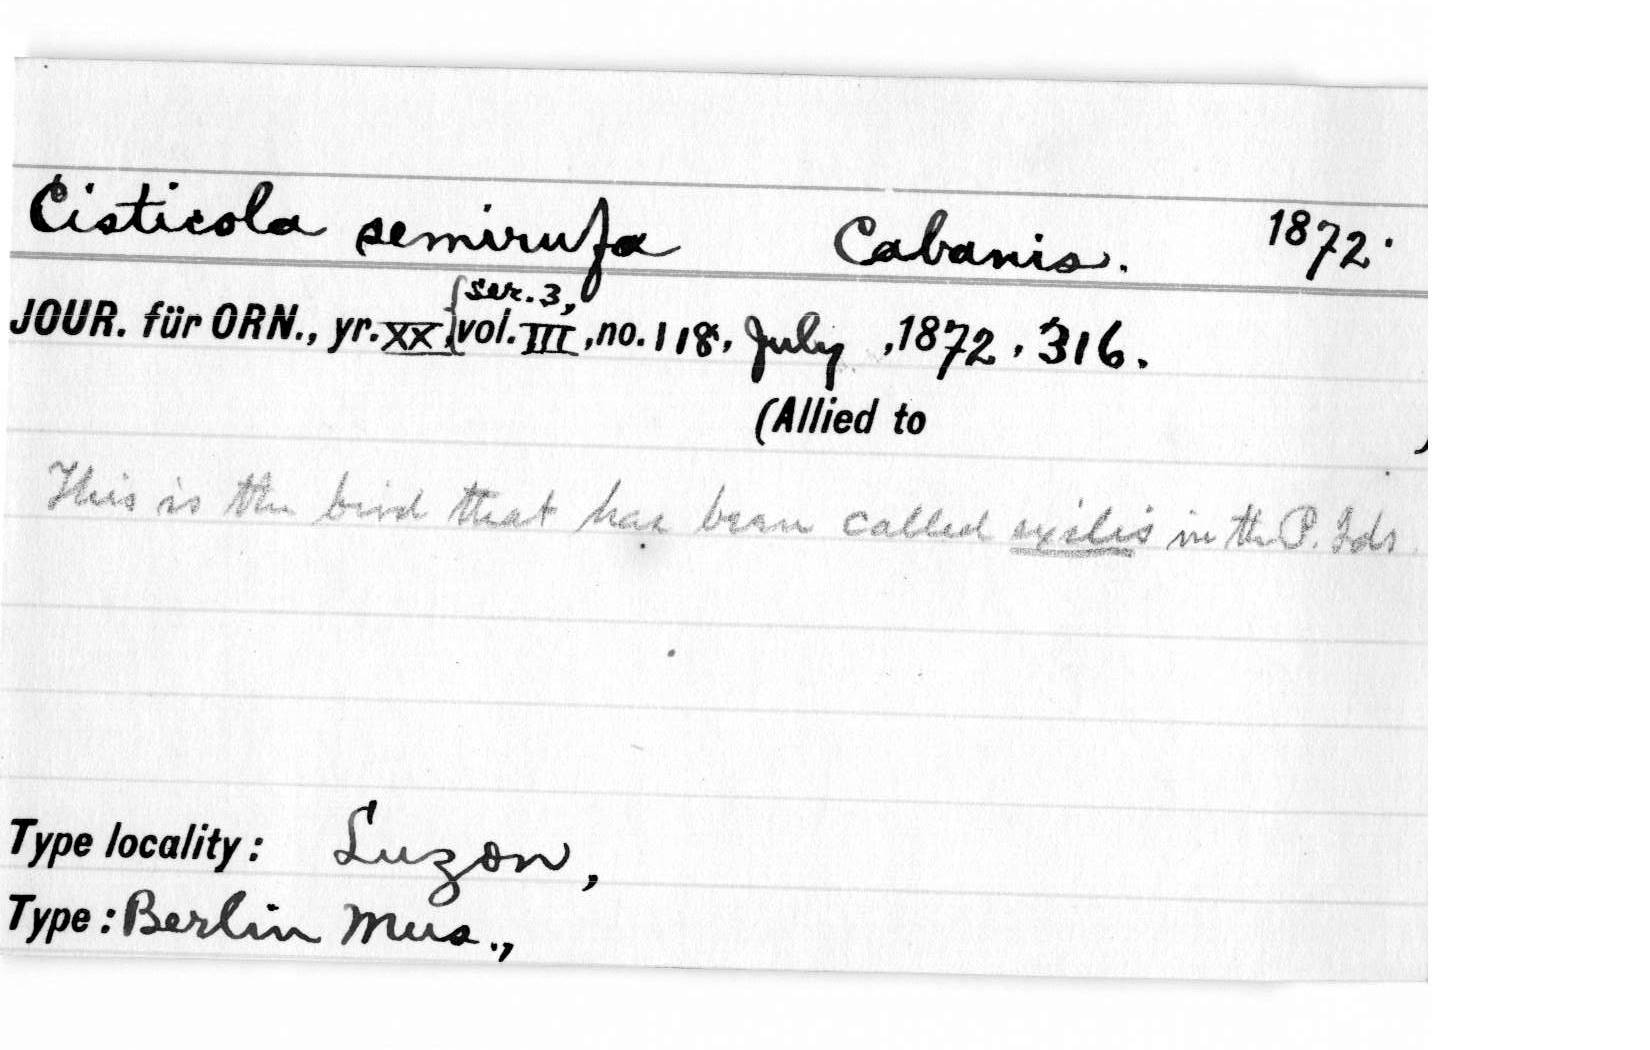 Cisticola semirufa Cabanis. 1872.
JOUR. für ORN., yr. XX, {ser. 3, vol. III, no. 118, July, 1872, 316.
(Allied to )
This is the bird that has been called exilis in the P. Ids.
Type locality: Luzon,
Type: Berlin Mus.,